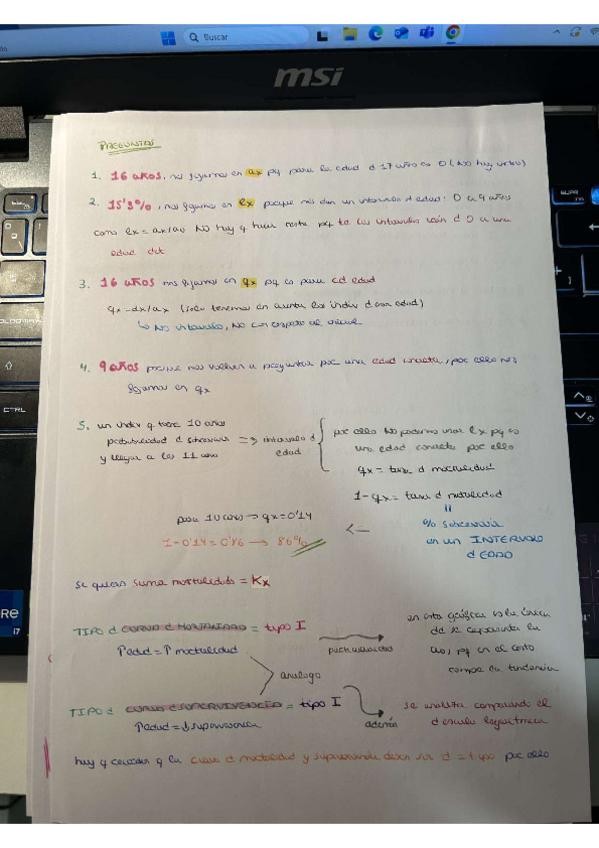 Buscar
msi
PREGUNTAS
1. 16 años, nos fijamos en ax pq para la edad d 17 años es 0 (No hay vivos)
2. 15'3%, nos fijamos en lx porque nos dan un intervalo d edad: 0 a 9 años
como lx = ax/a0 NO hay q hacer resta pq to los intervalos van d 0 a una
edad det
3. 16 años nos fijamos en qx pq es para cd edad
qx = dx/ax (solo tenemos en cuenta los indiv d esa edad)
↳ No intervalo, No con respecto al inicial
4. 9 años porque nos vuelven a preguntar por una edad concreta, por ello nos
fijamos en qx
5. un indiv q tiene 10 años
probabilidad d sobrevivir
y llegar a los 11 años
=> intervalo d
edad
por ello NO podemos usar lx pq es
una edad concreta por ello
qx = tasa d mortalidad
1-qx = tasa d natalidad
=
% sobrevivir
en un INTERVALO
d EDAD
<-
para 10 años -> qx = 0'14
1-0'14 = 0'86 -> 86%
se quiere suma mortalidades = Kx
TIPO d CURVA d MORTALIDAD = tipo I
↑edad = ↑ mortalidad
analogo
en esta gráfica es la única
TIPO d CURVA d SUPERVIVENCIA = tipo I
↑edad = ↓ supervivencia
además
se analiza comparando el
hay q recordar q la curva d mortalidad y supervivencia deben ser d = tipo por ello
MSI
CTRL
i7